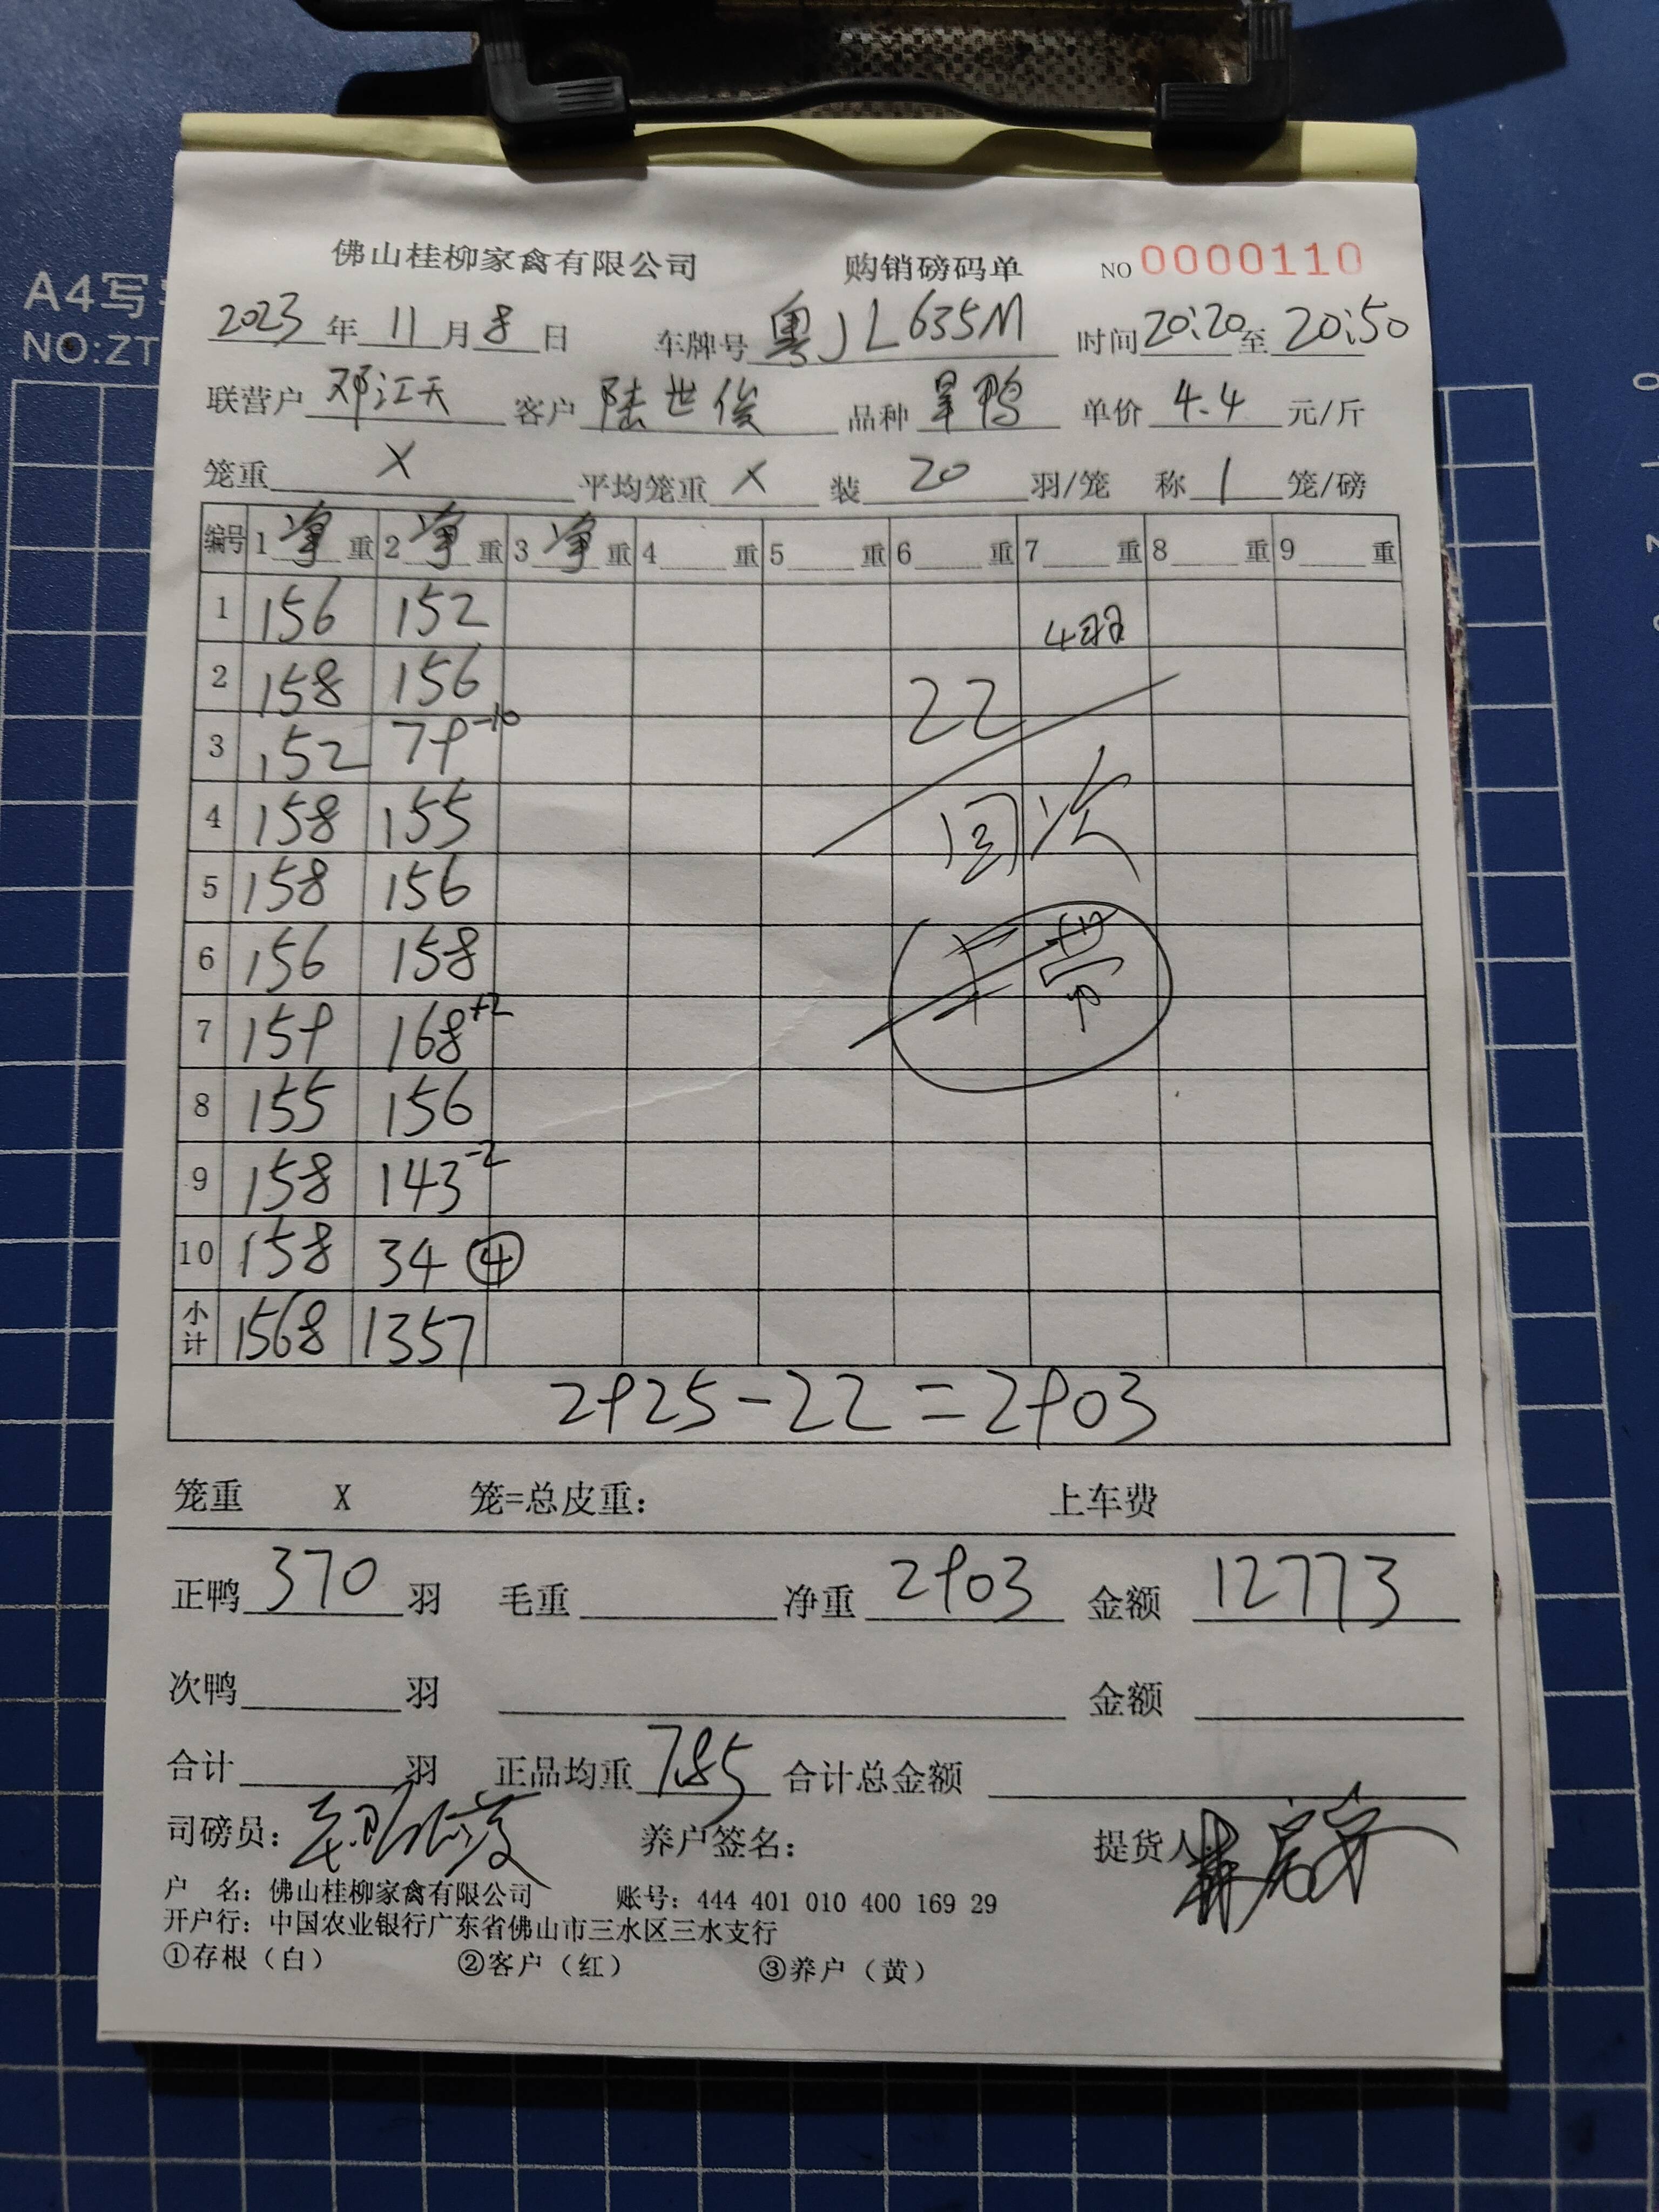 A4写
NO:ZT
佛山桂柳家禽有限公司 购销磅码单 NO 0000110
2023 年 11 月 8 日 车牌号 粤JL635M 时间 20:20 至 20:50
联营户 邓江天 客户 陆世俊 品种 旱鸭 单价 4.4 元/斤
笼重 X 平均笼重 X 装 20 羽/笼 称 1 笼/磅
编号 1 净 重 2 净 重 3 净 重 4 重 5 重 6 重 7 重 8 重 9 重
1 156 152 4羽
2 158 156 22
3 152 79-10
4 158 155 回次
5 158 156
6 156 158
7 159 168+2
8 155 156
9 158 143-2
10 158 34 ④
小计 1568 1357
2925-22=2903
笼重 X 笼=总皮重: 上车费
正鸭 370 羽 毛重 净重 2903 金额 12773
次鸭 羽 金额
合计 羽 正品均重 7.85 合计总金额
司磅员: 养户签名: 提货人
户 名: 佛山桂柳家禽有限公司 账号: 444 401 010 400 169 29
开户行: 中国农业银行广东省佛山市三水区三水支行
①存根（白） ②客户（红） ③养户（黄）